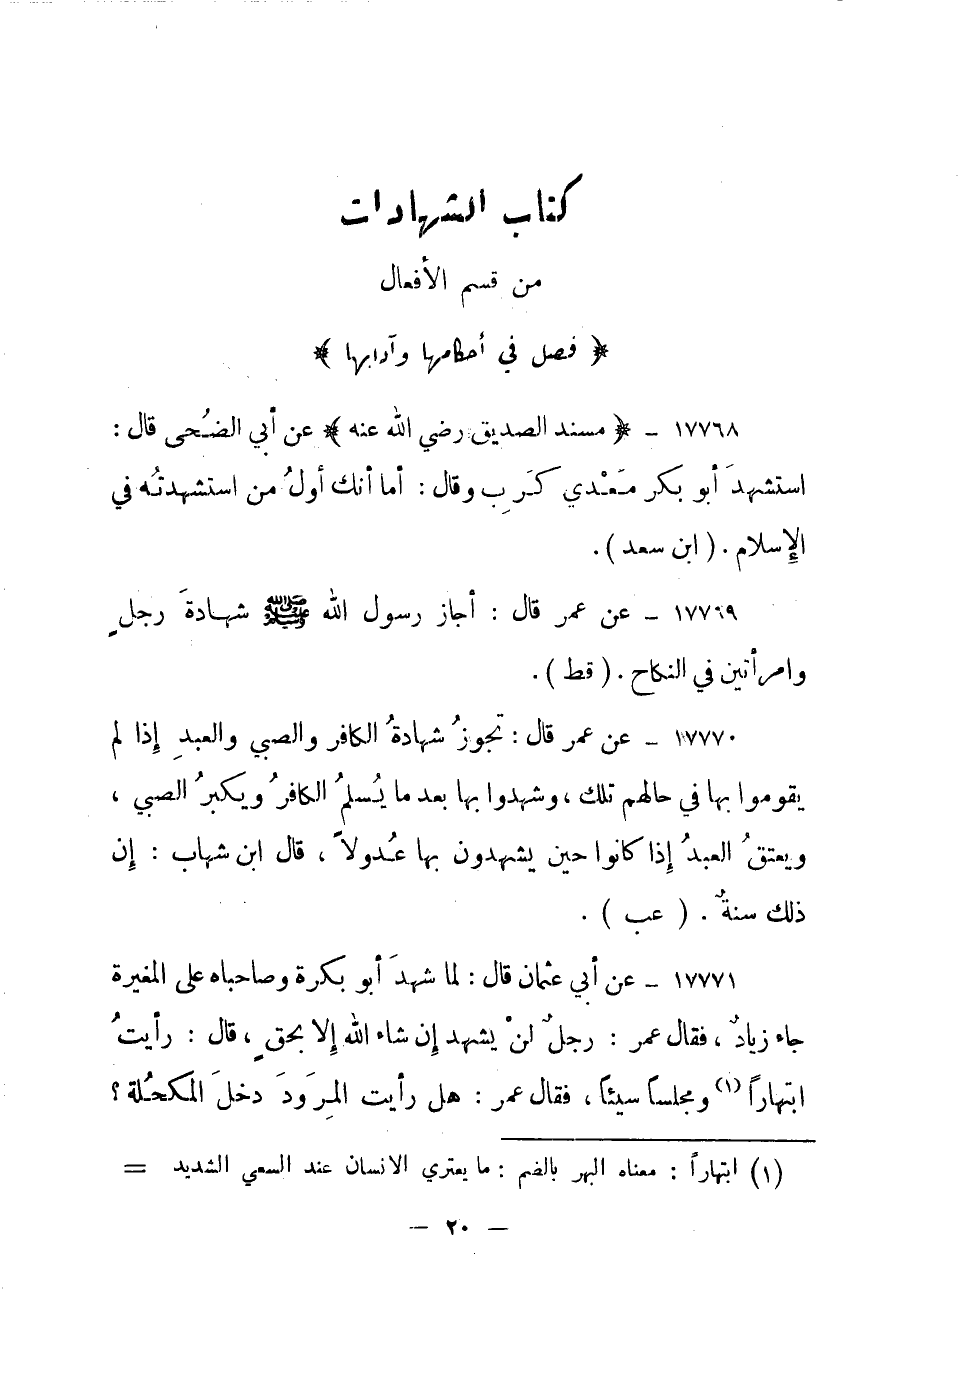 كتاب الشهادات
من قسم الأفعال
﴿ فصل في أحكامها وآدابها ﴾
١٧٧٦٨ ـ ﴿ مسند الصديق رضي الله عنه ﴾ عن أبي الضُحى قال :
استشهدَ أبو بكر مَعْدي كَرِب وقال : أما أنك أولُ من استشهدتُه في
الإِسلام . ( ابن سعد ) .
١٧٧٦٩ ـ عن عمر قال : أجاز رسول الله ﷺ شهادةَ رجلٍ
وامرأتين في النكاح . ( قط ) .
١٧٧٧٠ ـ عن عمر قال : تجوزُ شهادةُ الكافر والصبي والعبدِ إذا لم
يقوموا بها في حالهم تلك ، وشهدوا بها بعد ما يُسلمُ الكافرُ ويكبرُ الصبي ،
ويعتقُ العبدُ إذا كانوا حين يشهدون بها عُدولاً ، قال ابن شهاب : إن
ذلك سنةٌ . ( عب ) .
١٧٧٧١ ـ عن أبي عثمان قال : لما شهدَ أبو بكرة وصاحباه على المغيرة
جاء زيادٌ ، فقال عمر : رجلٌ لنْ يشهد إن شاء الله إلا بحقٍ ، قال : رأيتُ
ابتهاراً (١) ومجلساً سيئاً ، فقال عمر : هل رأيت المِرَودَ دخلَ المكحُلة ؟
(١) ابتهاراً : معناه البهر بالضم : ما يعتري الانسان عند السعي الشديد =
— ٢٠ —